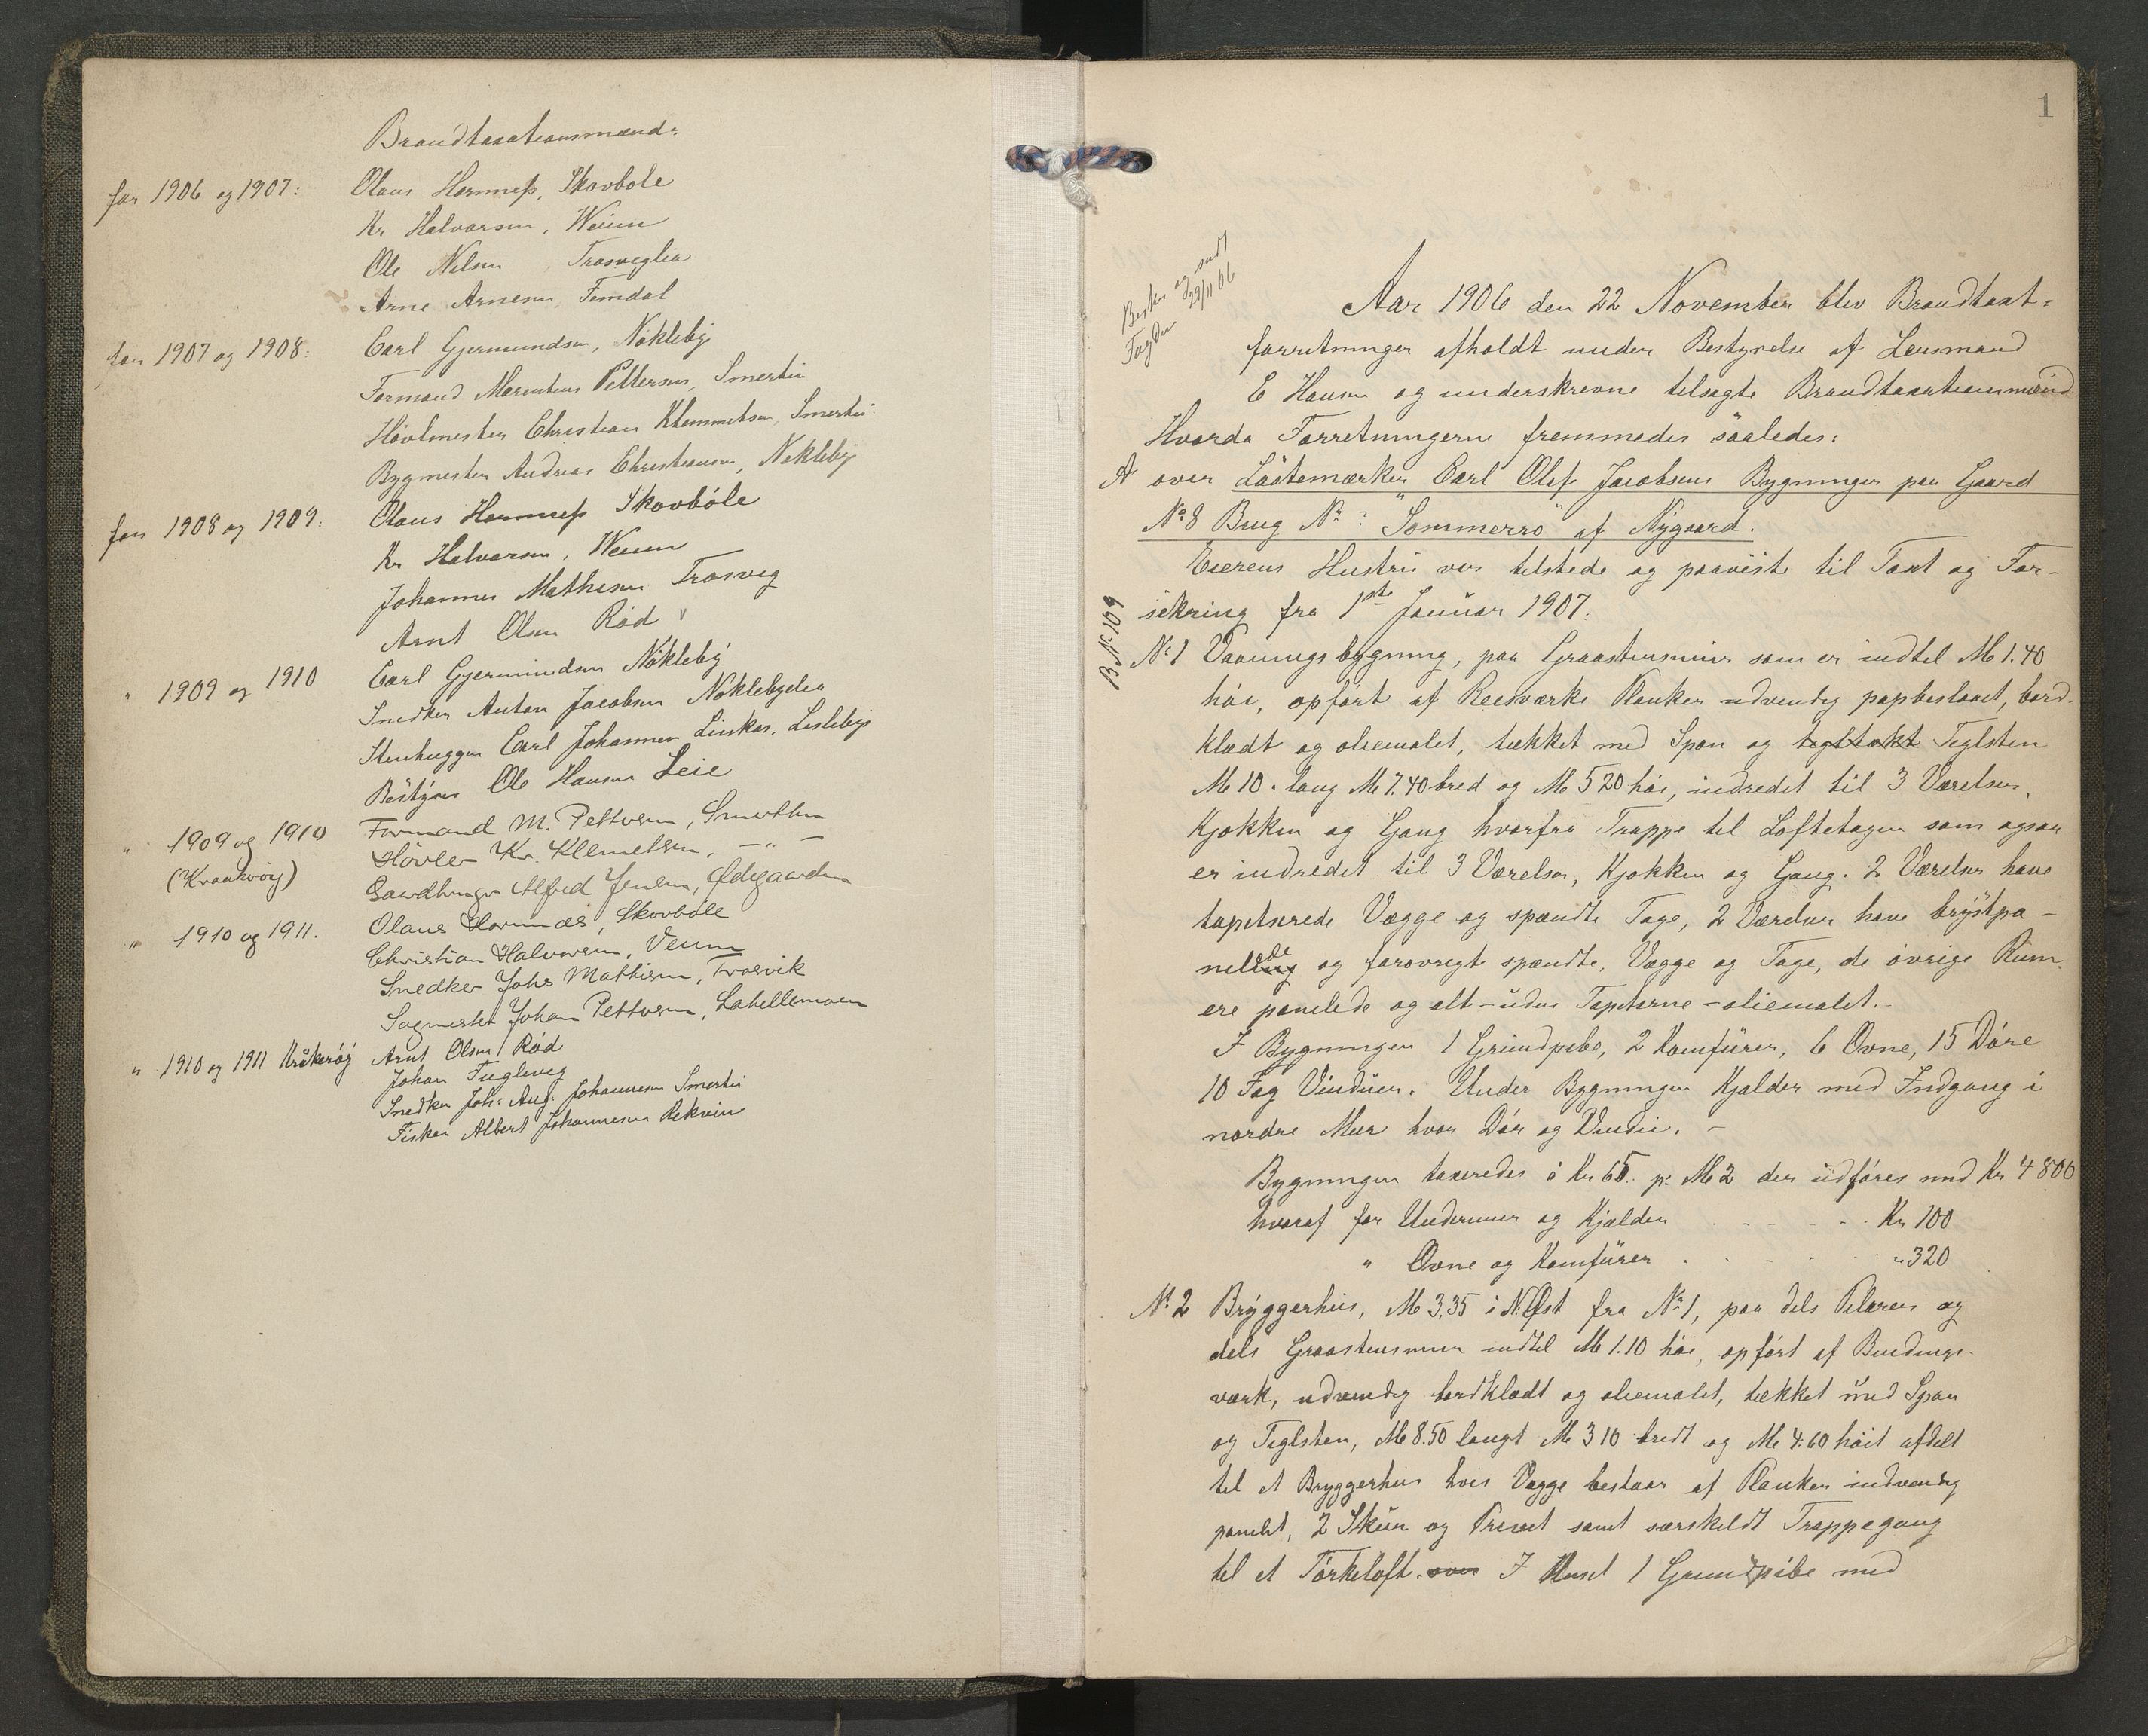 Brandtaxationsmænd:
for 1906 og 1907: Olaus Hornnes, Skovbøle
Kr Halvorsen, Weum
Ole Nilsen, Trosviglia
Arne Arnesen, Femdal
for 1907 og 1908: Carl Gjermundsen, Nökleby
Formand Marentius Pettersen, Smertu
Hövlmester Christian Klemmetsen, Smertu
Bygmester Andreas Christiansen, Nökleby
for 1908 og 1909: Olaus Hornnes Skovböle
Kr Halvorsen, Weum
Johannes Mathisen Trosvig
Arnt Olsen Röd
" 1909 og 1910 Carl Gjermundsen Nökleby
Snedker Anton Jacobsen Nöklebyelia
Stenhugger Carl Johannes Linkas, Lisleby
Bestyrer Ole Hansen Leie
" 1909 og 1910 Formand M. Pettersen, Smertu
(Kraakeröy) Hövler Kr. Klemetsen, — " —
Gaardbruger Alfred Jensen, Ødegaarden
" 1910 og 1911. Olaus Hornnæs, Skovböle
Christian Halvorsen, Veum
Snedker Johs Mathisen, Trosvik
Sagmester Johan Pettersen, Labellemoen
" 1910 og 1911 Kråkeröy Arnt Olsen Röd
Johan Fuglevig
Snedker Joh: Aug. Johannesen Smertu
Fisker Albert Johannesen Rekvin
1
Besk. og sendt
Fogden 29/11 06
Aar 1906 den 22 November blev Brandtaxt-
forretninger afholdt under Bestyrelse af Lensmand
E Hansen og underskrevne tilsagte Brandtaxationsmænd
Hvorda Forretningerne fremmedes saaledes:
A over Lästemærker Carl Olaf Jacobsens Bygninger paa Gaard
No 8 Brug No: "Sommerro" af Nygaard.
Eierens Hustru var tilstede og paaviste til Taxt og For-
sikring fra 1ste Januar 1907.
B No: 109
No 1 Vaaningsbygning, paa Graastensmur som er indtil M 1.40
höi, opfört af Reisværks Planker udvendig papbeslaaet, bord-
klædt og oliemalet, tækket med Spon og tegltækt Teglsten
M 10. lang M 7.40 bred og M 520 höi, indredet til 3 Værelser,
Kjøkken og Gang hvorfra Trappe til Loftetagen som ogsaa
er indredet til 3 Værelser, Kjøkken og Gang. 2 Værelser have
tapetserede Vægge og spændte Tage, 2 Værelser have brystpa-
nelede og forøvrigt spændte, Vægge og Tage, de övrige Rum
ere panelede og alt – uden Tapeterne – oliemalet. –
I Bygningen 1 Grundpibe, 2 Komfürer, 6 Ovne, 15 Döre
10 Fag Vinduer. Under Bygningen Kjælder med Indgang i
nordre Mur hvor Dör og Vindu. –
Bygningen taxeredes á Kr 65. pr. M2 der udföres med Kr 4800
hvoraf for Undermur og Kjælder . . . . Kr 100
" Ovne og Komfürer . . . . " 320
No 2 Bryggerhus, M 3,35 i N. Øst fra No 1, paa dels Pilarer og
dels Graastensmur indtil M 1.10 höi, opfört af Bindings-
værk, udvendig bordklædt og oliemalet, tækket med Spon
og Teglsten, M 8.50 langt M 3 10 bredt og M 4.60 höit afdelt
til et Bryggerhus hvis Vægge bestaar af Planker indvendig
panelet, 2 Skur og Privet samt særskildt Trappegang
til et Törkeloft. over I Huset 1 Grundpibe med